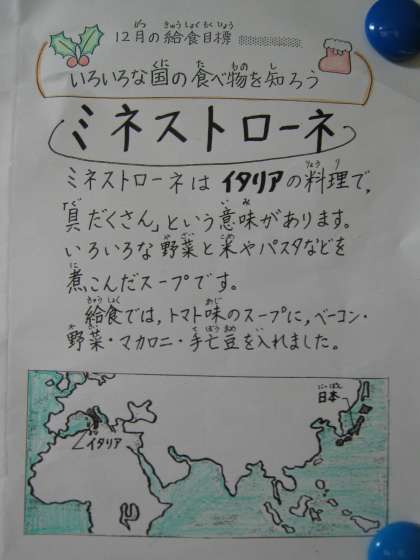 12月の給食目標
いろいろな国の食べ物を知ろう
ミネストローネ
ミネストローネはイタリアの料理で,
「具だくさん」という意味があります。
いろいろな野菜と米やパスタなどを
煮こんだスープです。
給食では,トマト味のスープに,ベーコン・
野菜・マカロニ・手亡豆を入れました。
にっぽん
日本
イタリア